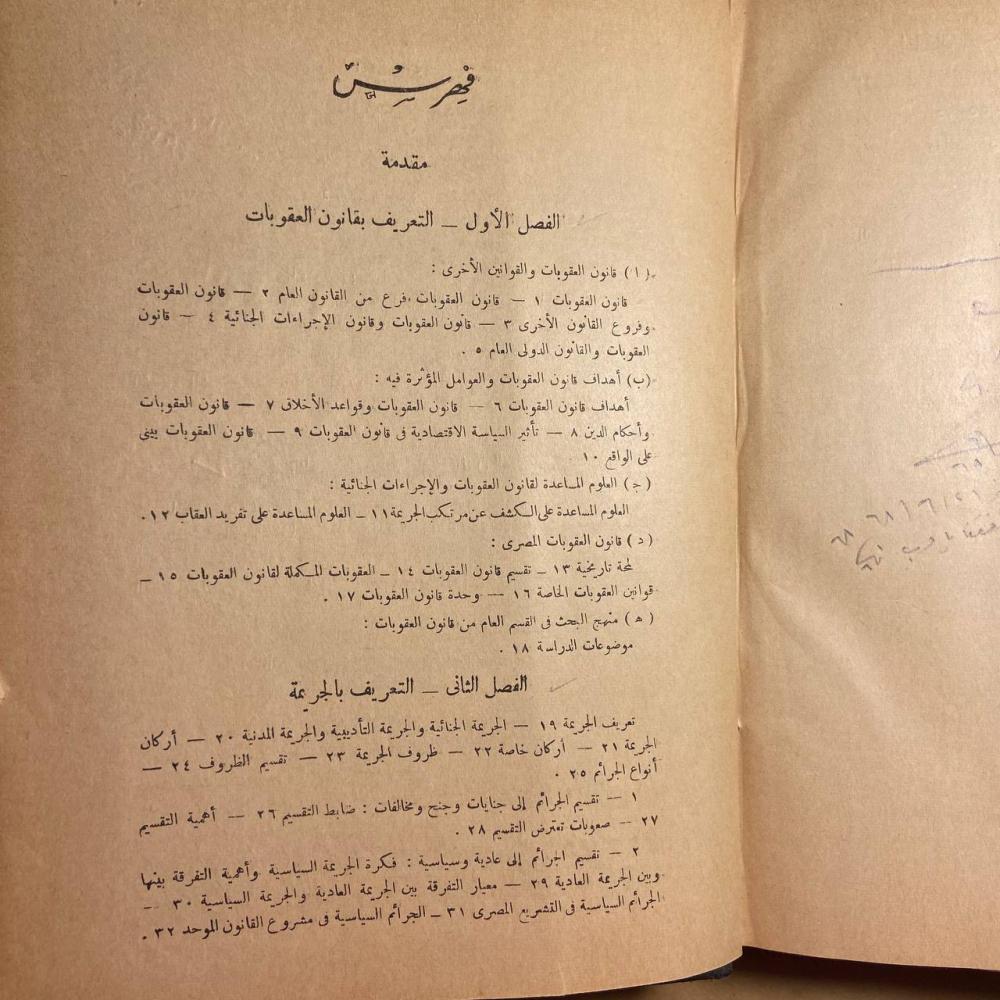 فهرس
مقدمة
الفصل الأول — التعريف بقانون العقوبات
(ا) قانون العقوبات والقوانين الأخرى :
قانون العقوبات ١ — قانون العقوبات فرع من القانون العام ٢ — قانون العقوبات
وفروع القانون الأخرى ٣ — قانون العقوبات وقانون الإجراءات الجنائية ٤ — قانون
العقوبات والقانون الدولى العام ٥ .
(ب) أهداف قانون العقوبات والعوامل المؤثرة فيه :
أهداف قانون العقوبات ٦ — قانون العقوبات وقواعد الأخلاق ٧ — قانون العقوبات
وأحكام الدين ٨ — تأثير السياسة الاقتصادية فى قانون العقوبات ٩ — قانون العقوبات يبنى
على الواقع ١٠
(ج) العلوم المساعدة لقانون العقوبات والإجراءات الجنائية :
العلوم المساعدة على الكشف عن مرتكب الجريمة ١١ — العلوم المساعدة على تفريد العقاب ١٢ .
(د) قانون العقوبات المصرى :
لمحة تاريخية ١٣ — تقسيم قانون العقوبات ١٤ — العقوبات المكملة لقانون العقوبات ١٥ —
قوانين العقوبات الخاصة ١٦ — وحدة قانون العقوبات ١٧ .
(ه) منهج البحث فى القسم العام من قانون العقوبات :
موضوعات الدراسة ١٨ .
الفصل الثانى — التعريف بالجريمة
تعريف الجريمة ١٩ — الجريمة الجنائية والجريمة التأديبية والجريمة المدنية ٢٠ — أركان
الجريمة ٢١ — أركان خاصة ٢٢ — ظروف الجريمة ٢٣ — تقسيم الظروف ٢٤ —
أنواع الجرائم ٢٥ .
١ — تقسيم الجرائم إلى جنايات وجنح ومخالفات : ضابط التقسيم ٢٦ — أهمية التقسيم
٢٧ — صعوبات تعترض التقسيم ٢٨ .
٢ — تقسيم الجرائم إلى عادية وسياسية : فكرة الجريمة السياسية وأهمية التفرقة بينها
وبين الجريمة العادية ٢٩ — معيار التفرقة بين الجريمة العادية والجريمة السياسية ٣٠ —
الجرائم السياسية فى التشريع المصرى ٣١ — الجرائم السياسية فى مشروع القانون الموحد ٣٢ .